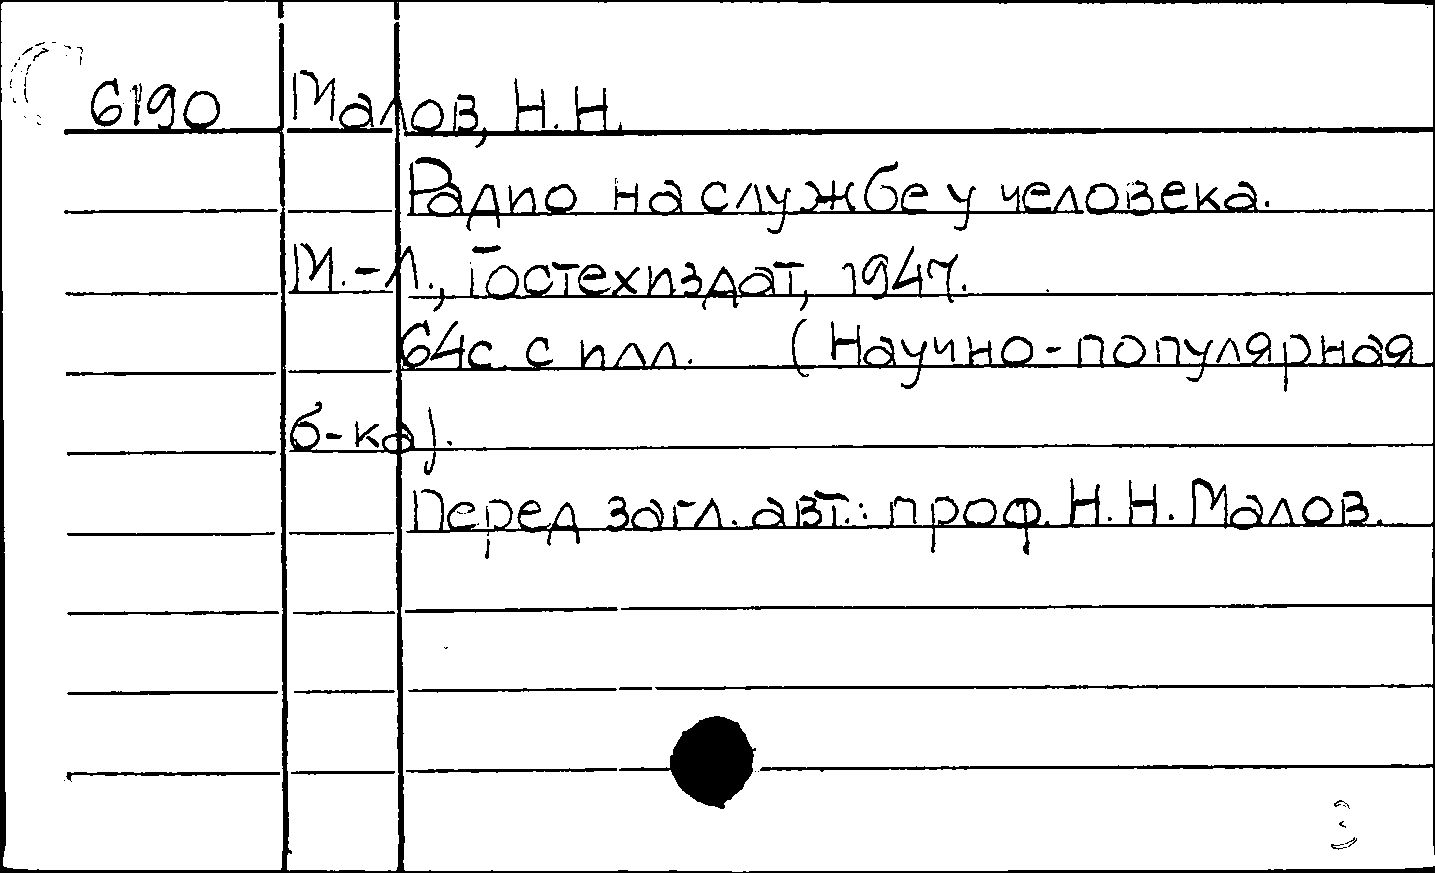 6190 Малов, Н.Н.
Радио на службе у человека.
М.-Л., Гостехиздат, 1947.
64с. с илл. (Научно-популярная
б-ка).
Перед загл. авт.: проф. Н.Н. Малов.
3